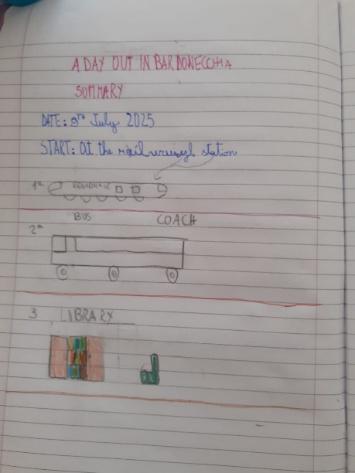 A DAY OUT IN BARDONECCHIA
SUMMARY
DATE: 3rd July 2025
START: at the railway station
1a
BUS COACH
2a
3 LIBRARY